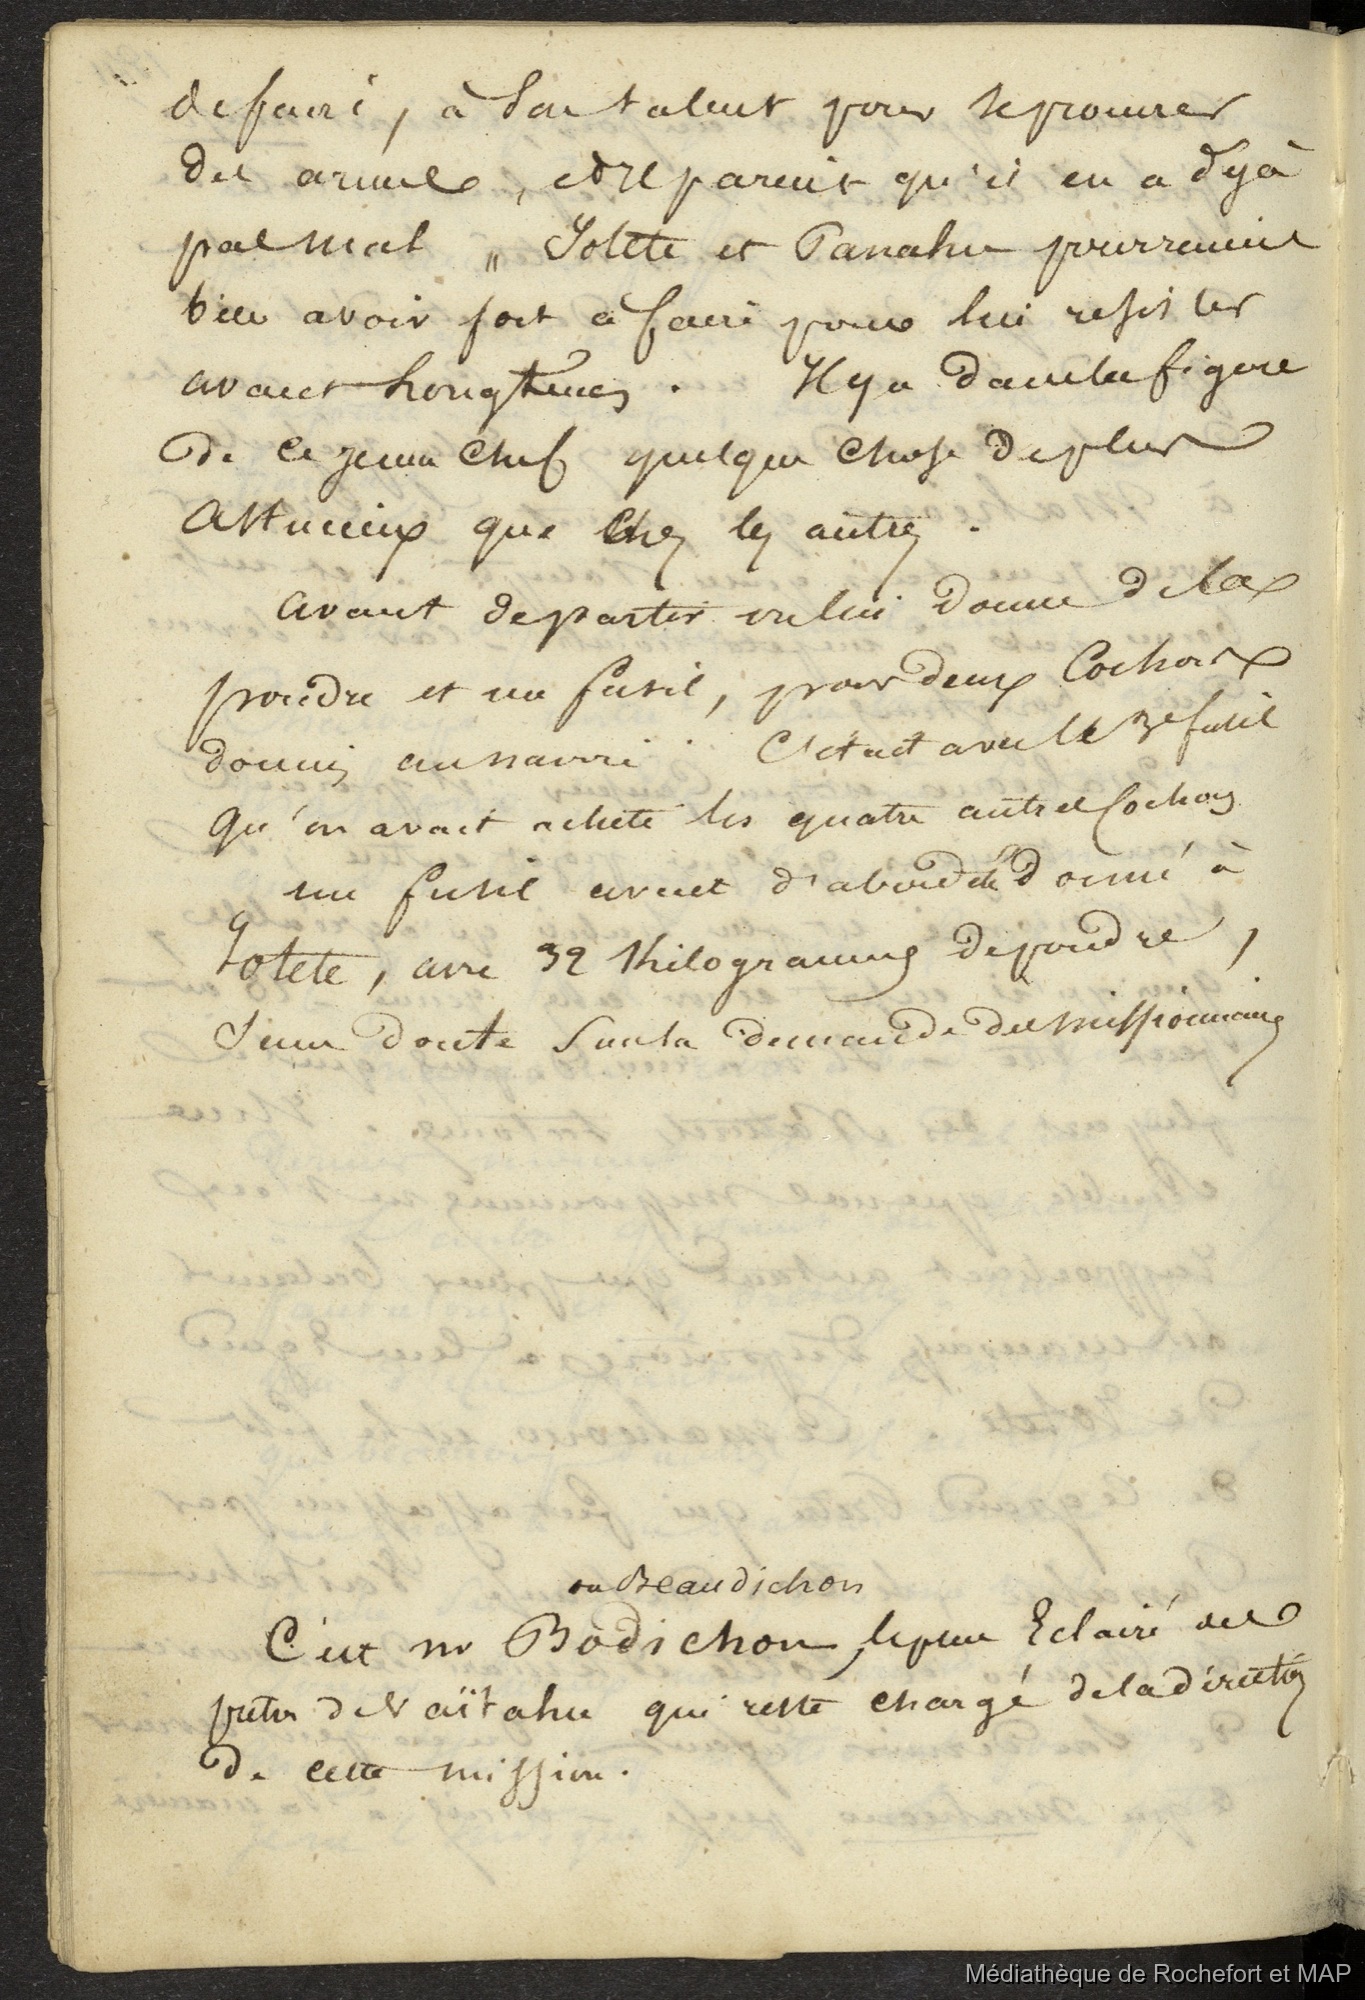 de faire, à son talent pour se procurer
des armes, et il parait qu'il en a déjà
pas mal „ Iotete et Panahu pourraient
bien avoir fort à faire pour lui resister
avant longtems. Il y a dans la figure
de ce jeune chef quelque chose de plus
astucieux que chez les autres.
avant de partir on lui donne de la
poudre et un fusil, pour deux cochons
donnés au navire C'etait avec le 3e fusil
qu'on avait acheté les quatre autres cochons
un fusil avait d'abord été donné à
Iotete, avec 32 Kilogrammes de poudre,
sans doute sur la demande des missionnaires
ou Beaudichon
C'est mr Bodichon, le plus Eclairé des
pretres de Vaïtahu qui reste chargé de la diréction
de cette mission.
Médiathèque de Rochefort et MAP